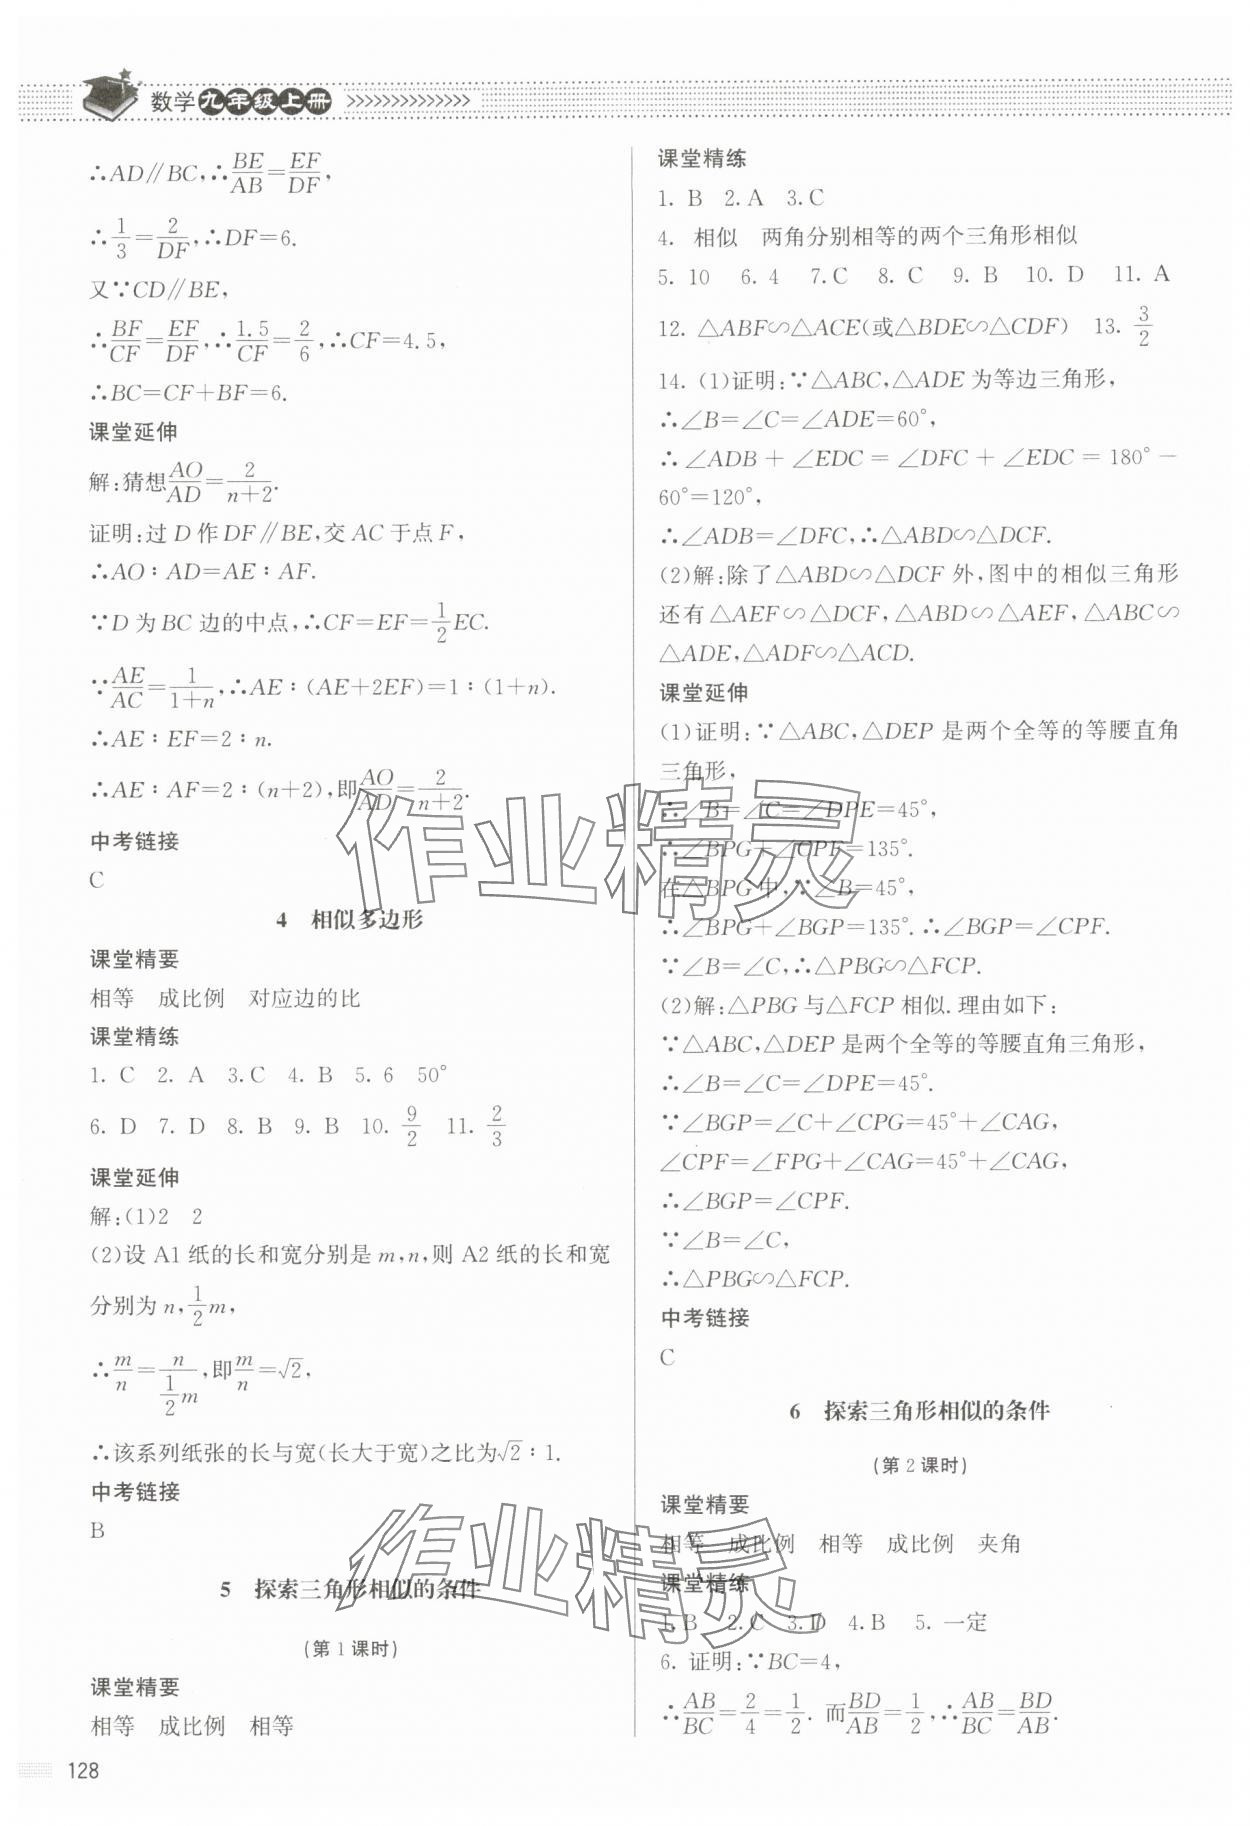 数学九年级上册
∴AD∥BC,∴BE/AB=EF/DF,
∴1/3=2/DF,∴DF=6.
又∵CD∥BE,
∴BF/CF=EF/DF,∴1.5/CF=2/6,∴CF=4.5,
∴BC=CF+BF=6.
课堂延伸
解:猜想AO/AD=2/(n+2).
证明:过 D 作 DF∥BE,交 AC 于点 F,
∴AO∶AD=AE∶AF.
∵D 为 BC 边的中点,∴CF=EF=1/2EC.
∵AE/AC=1/(1+n),∴AE∶(AE+2EF)=1∶(1+n).
∴AE∶EF=2∶n.
∴AE∶AF=2∶(n+2),即AO/AD=2/(n+2).
中考链接
C
4 相似多边形
课堂精要
相等 成比例 对应边的比
课堂精练
1. C 2. A 3. C 4. B 5. 6 50°
6. D 7. D 8. B 9. B 10. 9/2 11. 2/3
课堂延伸
解:(1)2 2
(2)设 A1 纸的长和宽分别是 m,n,则 A2 纸的长和宽
分别为 n,1/2m,
∴m/n=n/(1/2m),即m/n=√2,
∴该系列纸张的长与宽(长大于宽)之比为√2∶1.
中考链接
B
5 探索三角形相似的条件
(第 1 课时)
课堂精要
相等 成比例 相等
128
课堂精练
1. B 2. A 3. C
4. 相似 两角分别相等的两个三角形相似
5. 10 6. 4 7. C 8. C 9. B 10. D 11. A
12. △ABF∽△ACE(或△BDE∽△CDF) 13. 3/2
14. (1)证明:∵△ABC,△ADE 为等边三角形,
∴∠B=∠C=∠ADE=60°,
∴∠ADB+∠EDC=∠DFC+∠EDC=180°-
60°=120°,
∴∠ADB=∠DFC,∴△ABD∽△DCF.
(2)解:除了△ABD∽△DCF 外,图中的相似三角形
还有△AEF∽△DCF,△ABD∽△AEF,△ABC∽
△ADE,△ADF∽△ACD.
课堂延伸
(1)证明:∵△ABC,△DEP 是两个全等的等腰直角
三角形,
∴∠B=∠C=∠DPE=45°,
∴∠BPG+∠CPF=135°.
在△BPG 中,∵∠B=45°,
∴∠BPG+∠BGP=135°.∴∠BGP=∠CPF.
∵∠B=∠C,∴△PBG∽△FCP.
(2)解:△PBG 与△FCP 相似.理由如下:
∵△ABC,△DEP 是两个全等的等腰直角三角形,
∴∠B=∠C=∠DPE=45°.
∵∠BGP=∠C+∠CPG=45°+∠CAG,
∠CPF=∠FPG+∠CAG=45°+∠CAG,
∴∠BGP=∠CPF.
∵∠B=∠C,
∴△PBG∽△FCP.
中考链接
C
6 探索三角形相似的条件
(第 2 课时)
课堂精要
相等 成比例 相等 成比例 夹角
课堂精练
1. B 2. C 3. D 4. B 5. 一定
6. 证明:∵BC=4,
∴AB/BC=2/4=1/2. 而BD/AB=1/2,∴AB/BC=BD/AB.
作业精灵
作业精灵